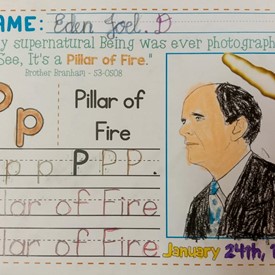 NAME: Eden Joel. D
supernatural Being was ever photograph
See, It's a Pillar of Fire."
Brother Branham - 53-0508
Pp
Pillar of
Fire
p p p P P P.
Pillar of Fire
Pillar of Fire
January 24th,